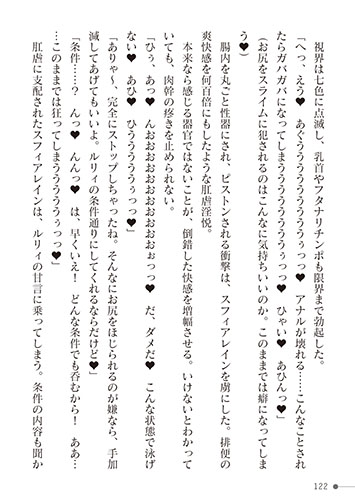 視界は七色に点滅し、乳首やフタナリチンポも限界まで勃起した。
「へっ、えう♥　あぐうううううううううぅっっ♥　アナルが壊れる……こんなことされ
たらガバガバになってしまうううううううぅっっ♥　ひゃい♥　あひんっ♥
(お尻をスライムに犯されるのはこんなに気持ちいいのか。このままでは癖になってしま
う♥)
　腸内を丸ごと性器にされ、ピストンされる衝撃は、スフィアレインを虜にした。排便の
爽快感を何百倍にもしたような肛虐淫悦。
　本来なら感じる器官ではないことが、倒錯した快感を増幅させる。いけないとわかって
いても、肉幹の疼きを止められない。
「ひぅ、あっ♥　んおおおおおおおおおおおぉっっ♥　だ、ダメだ♥　こんな状態で泳げ
ない♥　あひ♥　ひぅうううううぅっっ♥」
「ありゃ～、完全にストップしちゃったね。そんなにお尻をほじられるのが嫌なら、手加
減してあげてもいいよ。ルリィの条件通りにしてくれるならだけど♥」
「条件……？　んっ♥　んんっ♥　は、早くいえ！　どんな条件でも呑むから！　ああ…
…このままでは狂ってしまうううううぅっっ♥」
　肛虐に支配されたスフィアレインは、ルリィの甘言に乗ってしまう。条件の内容も聞か
122